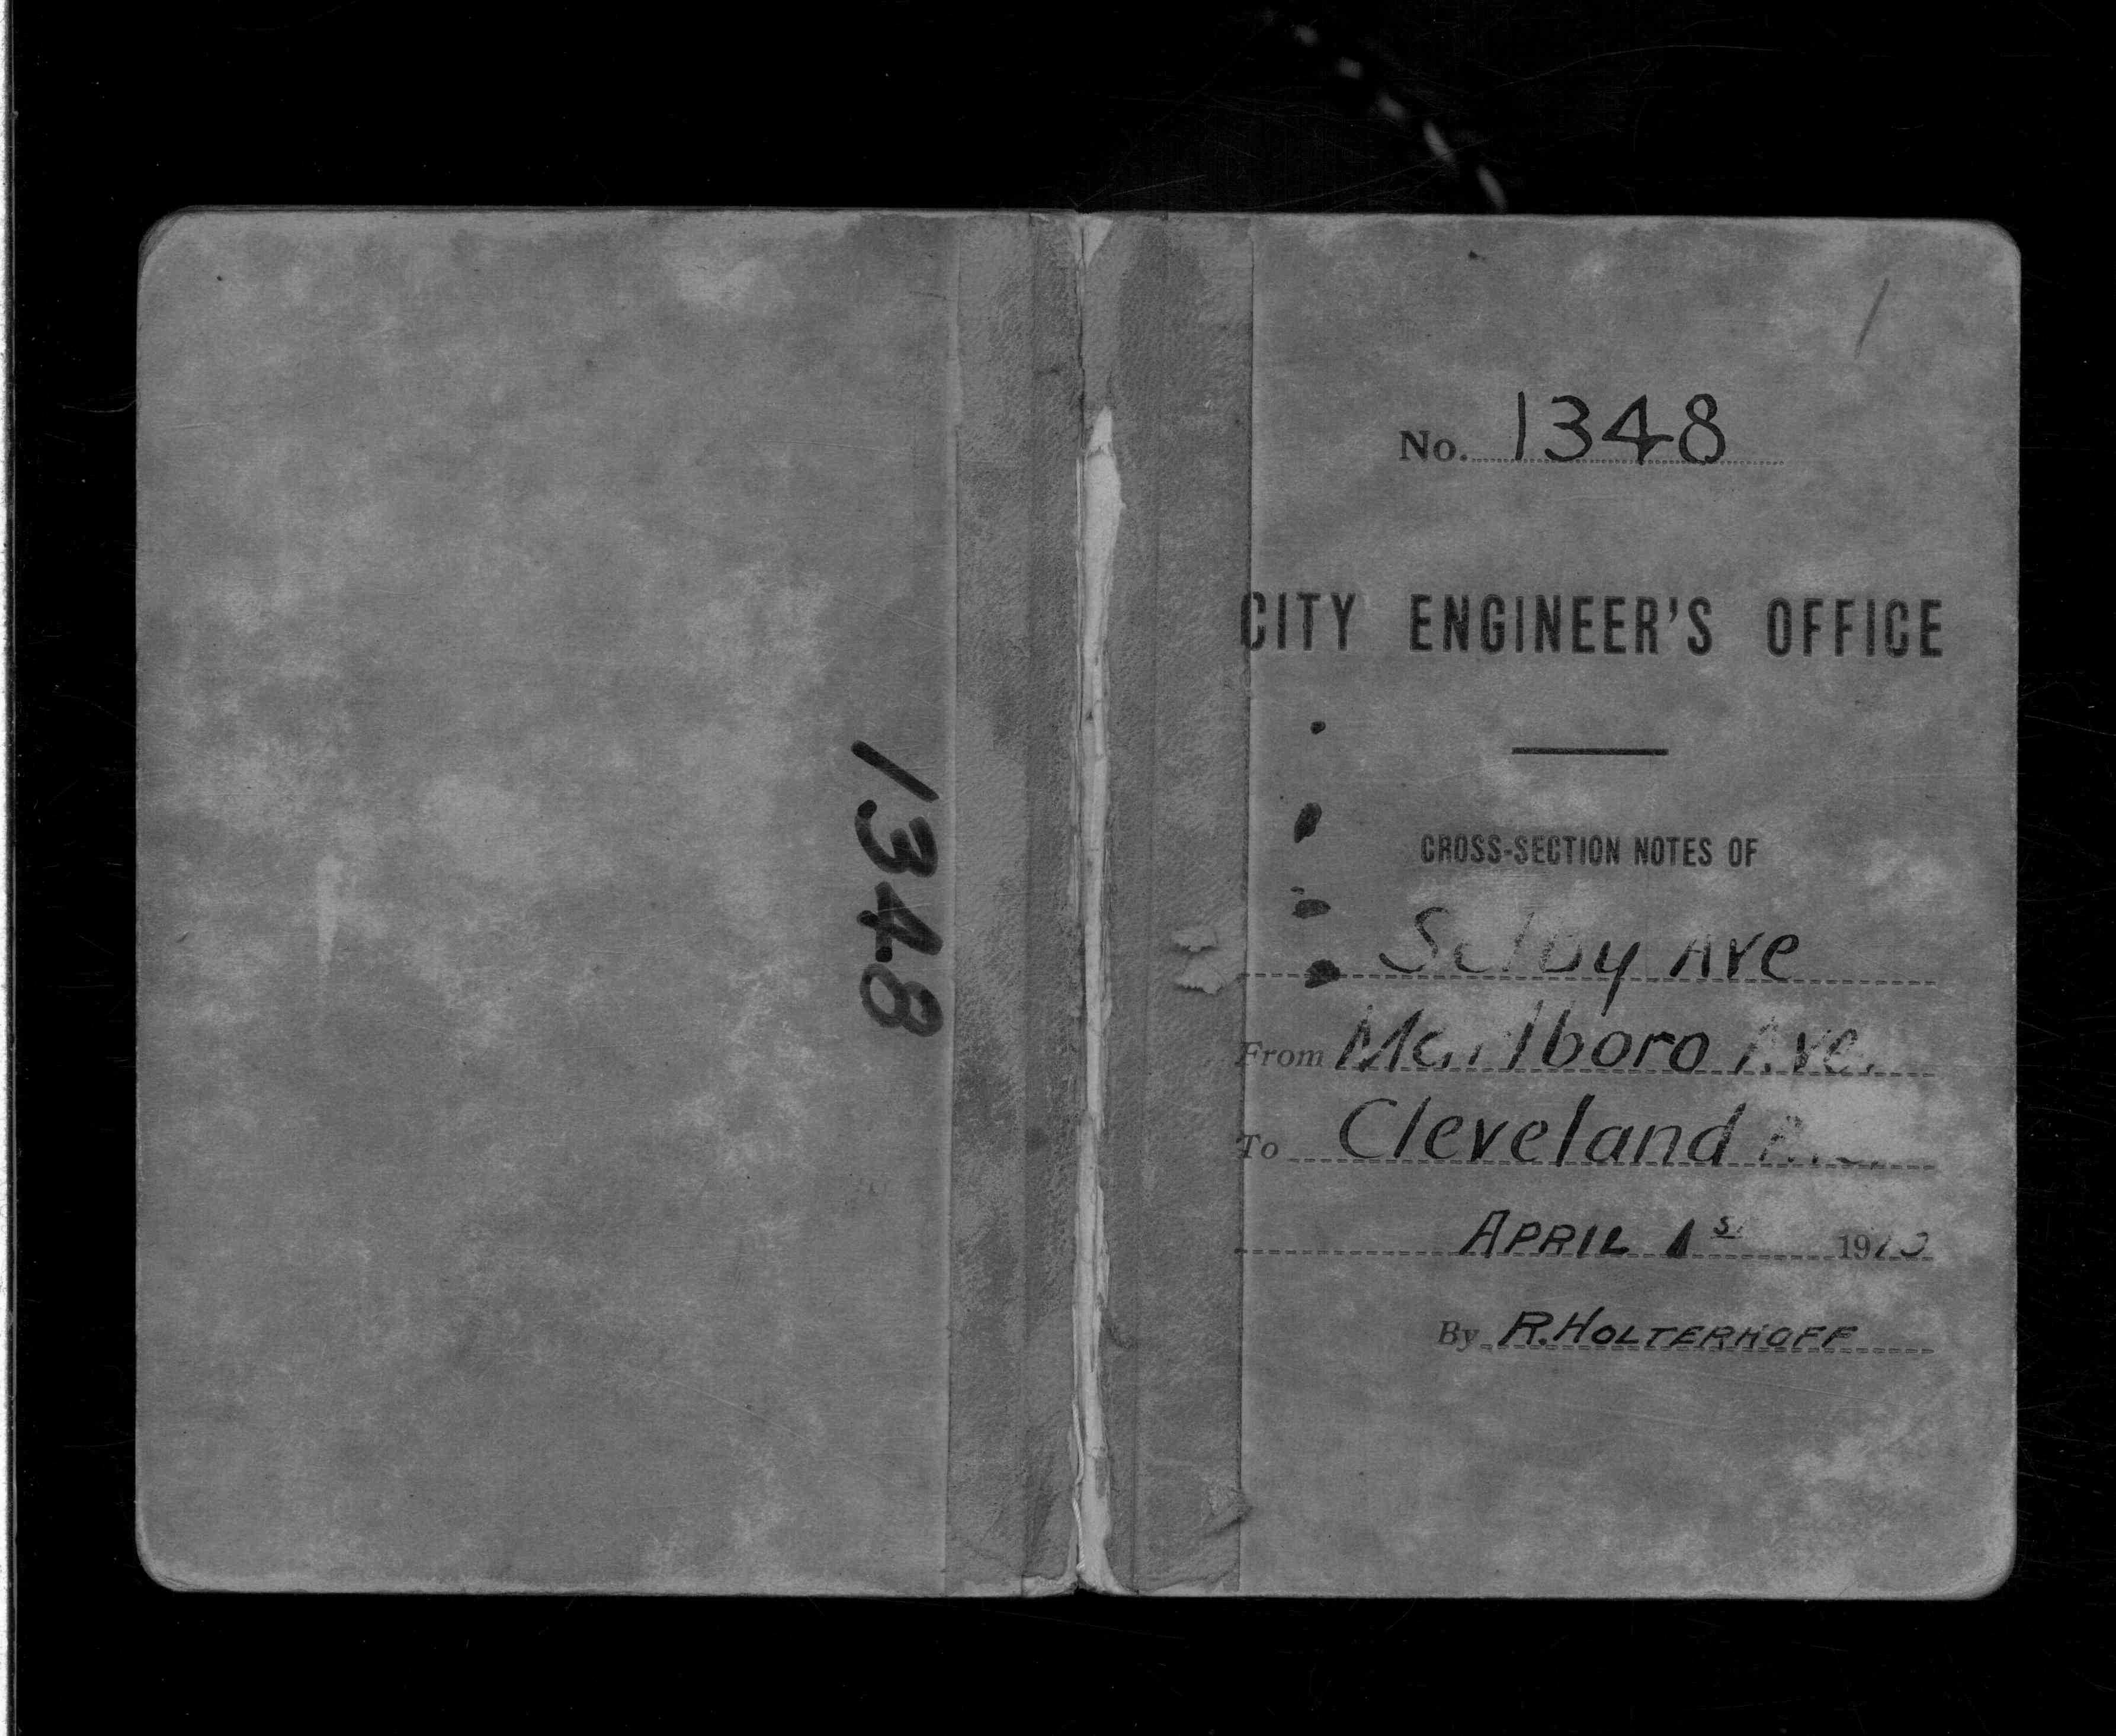 1348
No. 1348
CITY ENGINEER'S OFFICE
CROSS-SECTION NOTES OF
Selby Ave
From Marlboro Ave.
To Cleveland
APRIL 1st
By R. HOLTERHOFF